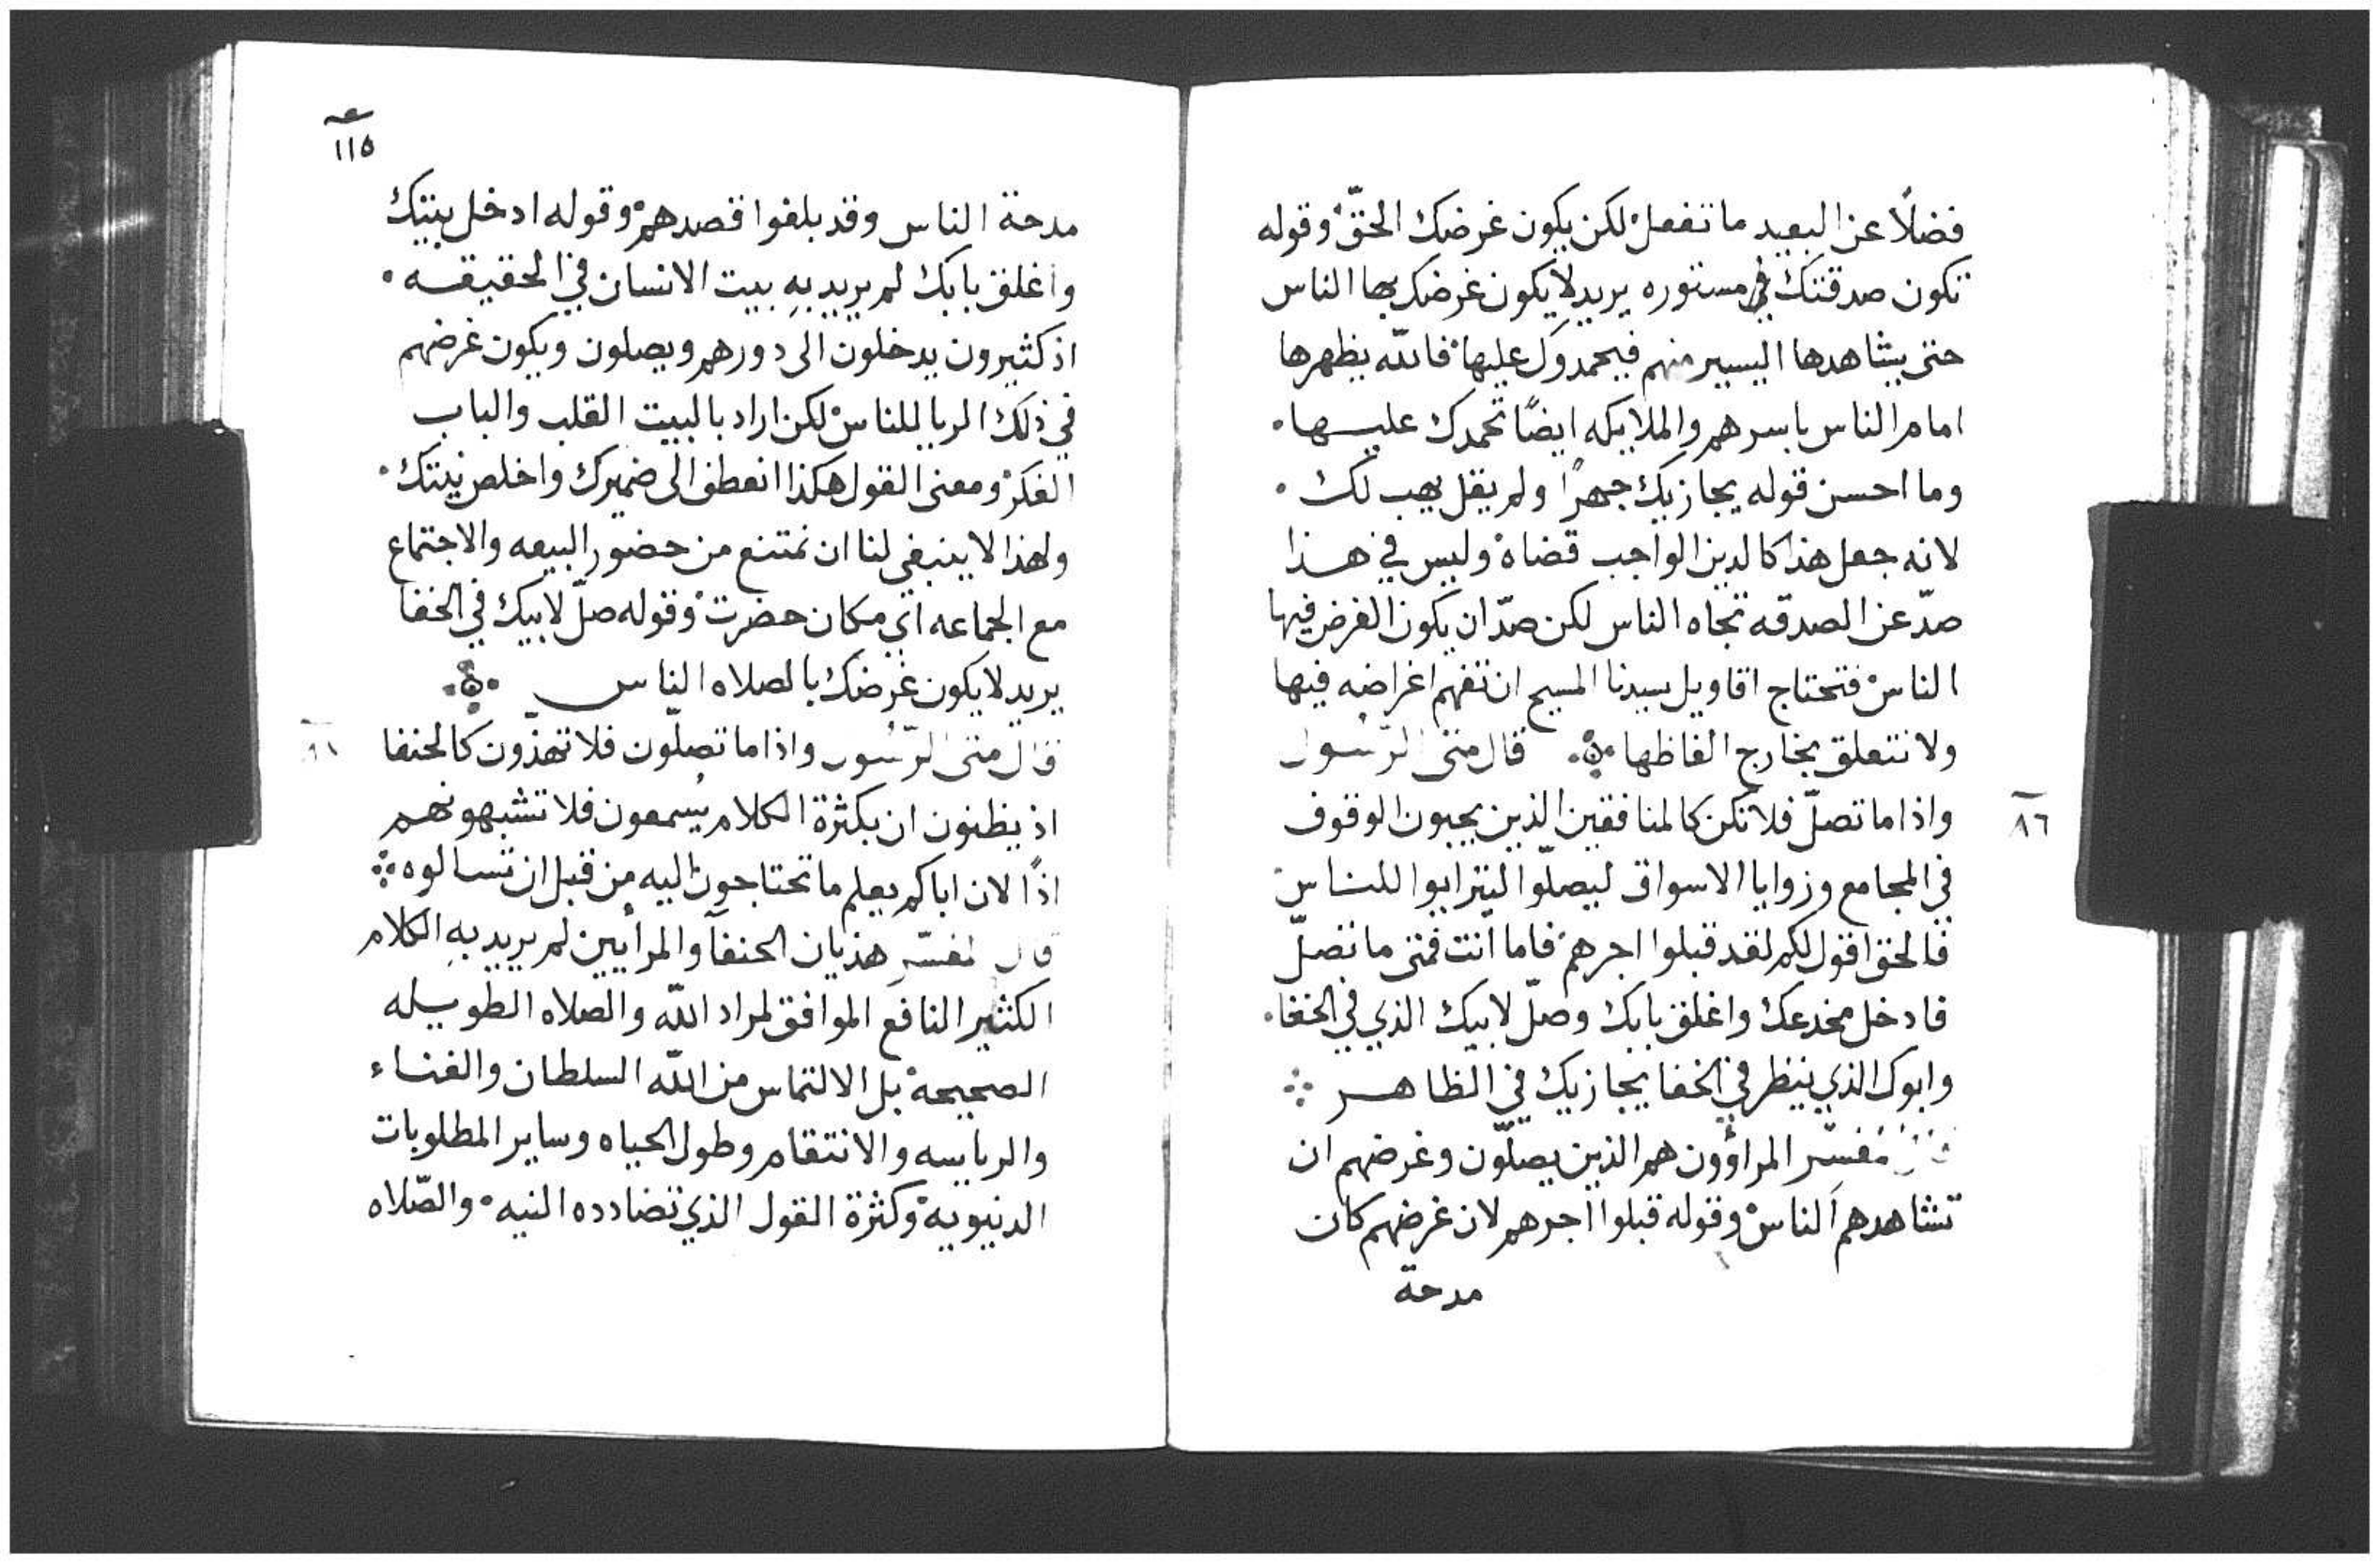 فضلًا عن البعيد ما تفعل لكن يكون غرضك الحقّ وقوله
تكون صدقتك في مستوره يريد لا يكون غرضك بها الناس
حتى يشاهدها اليسير منهم فيحمدوك عليها فالله يظهرها
امام الناس باسرهم والملايكه ايضًا تحمدك عليها
وما احسن قوله يجازيك جهرًا ولم يقل يهب لك
لانه جعل هذا كالدين الواجب قضاه وليس في هذا
صدّ عن الصدقه تجاه الناس لكن صدّ ان يكون الغرض فيها
الناس فتحتاج اقاويل سيدنا المسيح ان تفهم اغراضه فيها
ولا نتعلق بخارج الفاظها قال متى الرسول
٨٦
واذا ما تصلّ فلا تكن كالمنافقين الذين يحبون الوقوف
في المجامع وزوايا الاسواق ليصلّوا ليترايوا للناس
فالحق اقول لكم لقد قبلوا اجرهم فاما انت فمتى ما تصلّ
فادخل مخدعك واغلق بابك وصلّ لابيك الذي في الخفا
وابوك الذي ينظر في الخفا يجازيك في الظاهر
مفسّر المراؤون هم الذين يصلّون وغرضهم ان
تشاهدهم الناس وقوله قبلوا اجرهم لان غرضهم كان
مدحة
١١٥
مدحة الناس وقد بلغوا قصدهم وقوله ادخل بيتك
واغلق بابك لم يريد بهِ بيت الانسان في الحقيقه
اذ كثيرون يدخلون الى دورهم ويصلون ويكون غرضهم
في ذلك الريا للناس لكن اراد بالبيت القلب والباب
الفكر ومعنى القول هكذا انعطف الى ضميرك واخلص نيتك
ولهذا لا ينبغي لنا ان نمتنع من حضور البيعه والاجتماع
مع الجماعه اي مكان حضرت وقوله صلّ لابيك في الخفا
يريد لا يكون غرضك بالصلاه الناس
قال متى الرّسول واذا ما تصلّون فلا تهذون كالحنفا
اذ يظنون ان بكثرة الكلام يُسمعون فلا تشبهونهم
اذًا لان اباكم يعلم ما تحتاجون اليه من قبل ان تسالوه
قال مفسّر هذيان الحنفآ والمرأيين لم يريد بهِ الكلام
الكثير النافع الموافق لمراد الله والصلاه الطويله
الصحيحة بل الالتماس من الله السلطان والغناء
والرياسه والانتقام وطول الحياه وساير المطلوبات
الدنيويه وكثرة القول الذي تضادده النيه والصّلاه